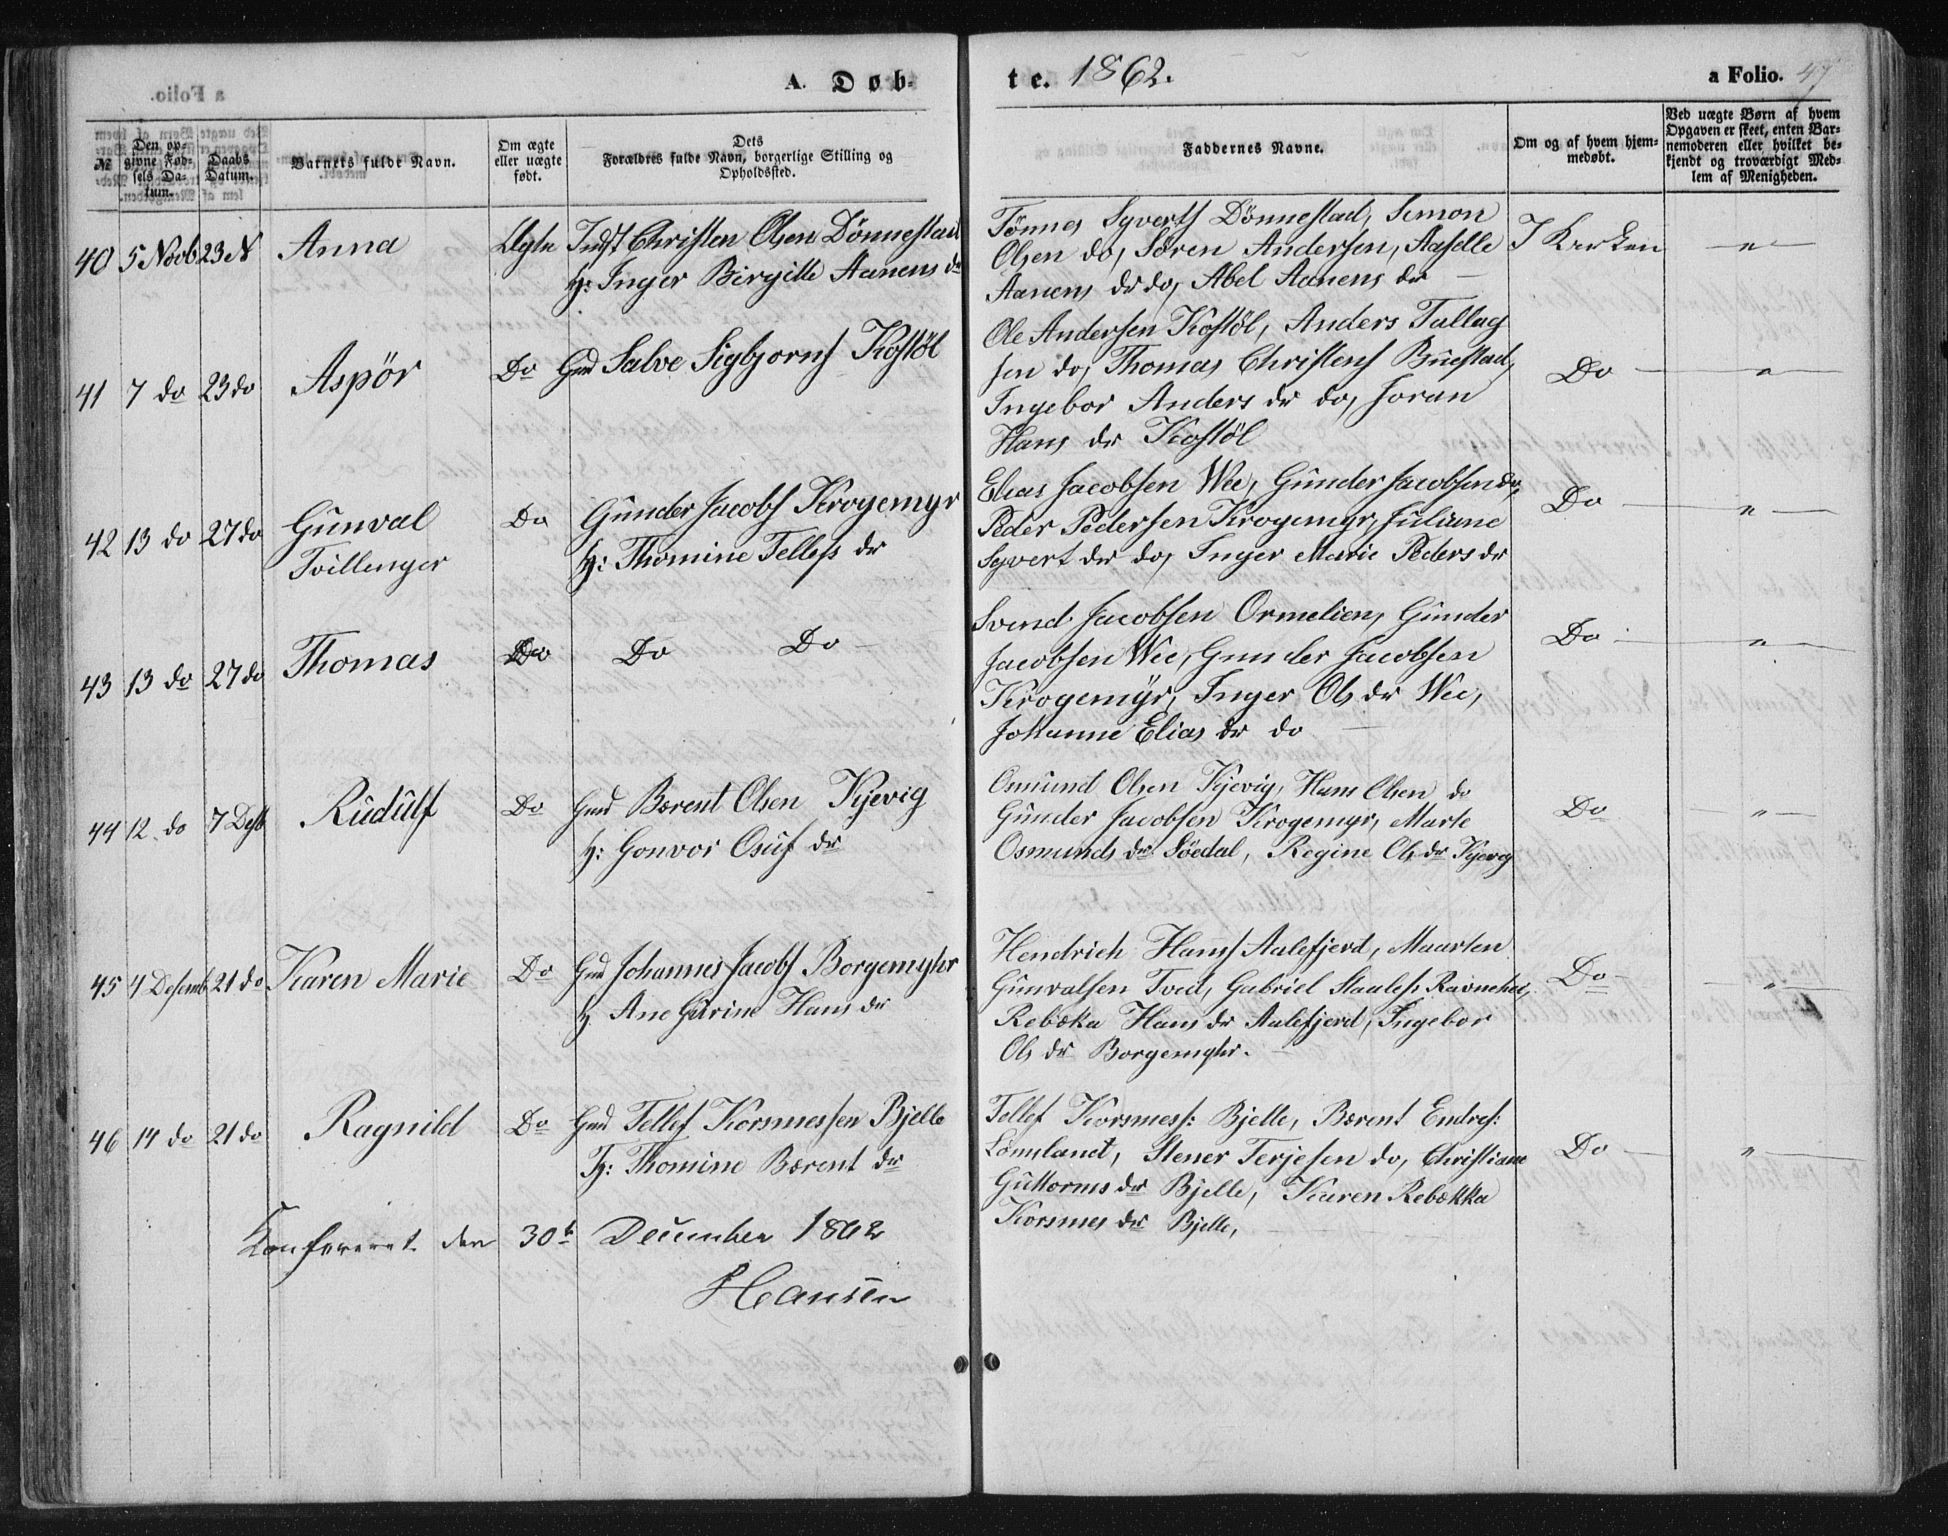 A. Døb-
te. 1862.
a Folio. 47
№
Den op-
givne Fød-
sels Da-
tum.
Daabs
Datum.
Barnets fulde Navn.
Om ægte
eller uægte
født.
Dets
Forældres fulde Navn, borgerlige Stilling og
Opholdssted.
Faddernes Navne.
Om og af hvem hjem-
medøbt.
Ved uægte Børn af hvem
Opgaven er skeet, enten Bar-
nemoderen eller hvilket be-
kjendt og troværdigt Med-
lem af Menigheden.
40 5 Novb 23 N Anna Ægte Indst Christen Olsen Dönnestad
H: Inger Birgitte Aanens dr
Tönnes Syverts Dönnestad, Simon
Olsen do, Sören Andersen, Aaselle
Aanens dr do, Abel Aanens dr
I Kirken "
41 7 do 23 do Aspör Do Gmd Salve Sigbjorns Kostöl
Ole Andersen Kostöl, Anders Tallag
sen do, Thomas Christens Buestad,
Ingebor Anders dr do, Joran
Hans dr Kostöl
Do "
42 13 do 27 do Gunval Do Gunder Jacobs Krogemyr
Tvillenger H: Thomine Tellefs dr
Elias Jacobsen Wee, Gunder Jacobsen do,
Peder Pedersen Krogemyr, Juliane
Syvert dr do, Inger Marie Peders dr
Do "
43 13 do 27 do Thomas Do Do Do
Svend Jacobsen Ormelien, Gunder
Jacobsen Wee, Gunder Jacobsen
Krogemyr, Inger Ols dr Wee,
Johanne Elias dr do
Do "
44 12 do 7 Desb Rudulf Do Gmd Bærent Olsen Kjevig
H: Gonvor Osuf dr
Osmund Olsen Kjevig, Hans Olsen do
Gunder Jacobsen Krogemyr, Marte
Osmunds dr Söedal, Regine Ols dr Kjevig
Do "
45 4 Desemb 21 do Karen Marie Do Gmd Johannes Jacobs Borgemyhr
H Ane Gurine Hans dr
Hendrich Hans Aalefjerd, Maarten
Gunvalsen Tved, Gabriel Staales: Ravnehei,
Rebæka Hans dr Aalefjerd, Ingebor
Ols dr Borgemyhr.
Do "
46 14 do 21 do Ragnild Do Gmd Tellef Korsmessen Bjelle
H: Thomine Bærent dr
Tellef Korsmess: Bjelle, Bærent Endres:
Lömsland, Stener Terjesen do, Christiane
Guttorms dr Bjelle, Karen Rebækka
Korsmes dr Bjelle,
Do "
Konfereret den 30te December 1862
Hansen